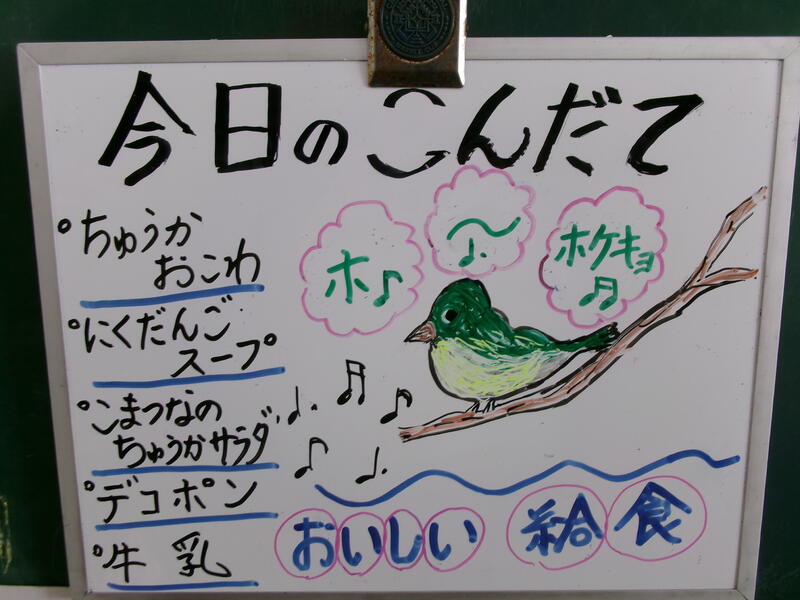 今日のこんだて
ちゅうか
おこわ
にくだんご
スープ
こまつなの
ちゅうかサラダ
デコポン
牛乳
ホ♪
〜♩.
ホケキョ
♬
おいしい 給食